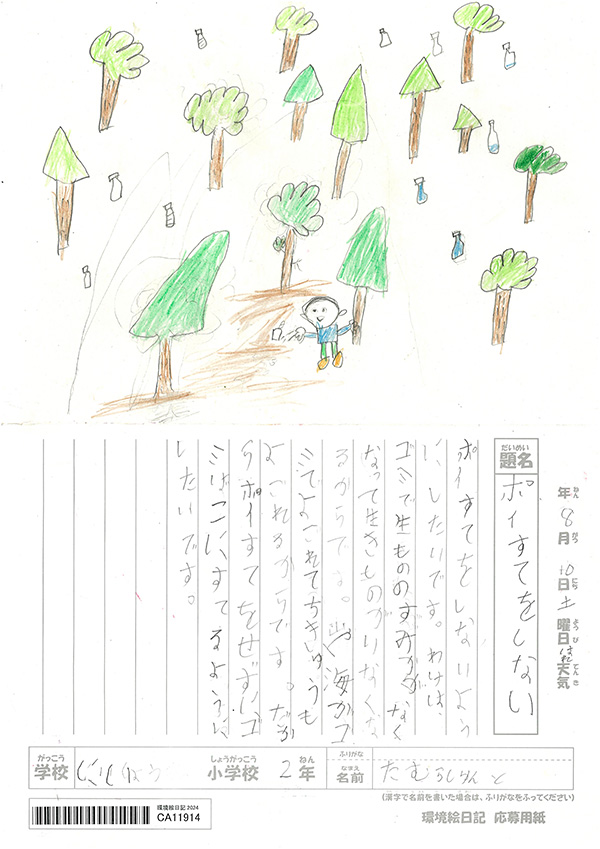 年 8月 10日 土曜日 はれ 天気
ねん がつ にち ようび てんき
だいめい
題名
ポイすてをしない
ポイすてをしないよう
にしたいです。わけは、
ゴミで生もののすみかがなく
なって生きものがいなくな
るからです。山や海がゴ
ミでよごれてちきゅうも
よごれるからです。だか
らポイすてをせずにゴ
ミはこにすてるように
したいです。
がっこう
学校
しょうがっこう
小学校
2年
ねん
ふりがな
なまえ
名前
(漢字で名前を書いた場合は、ふりがなをふってください)
環境絵日記 2024
CA11914
環境絵日記 応募用紙